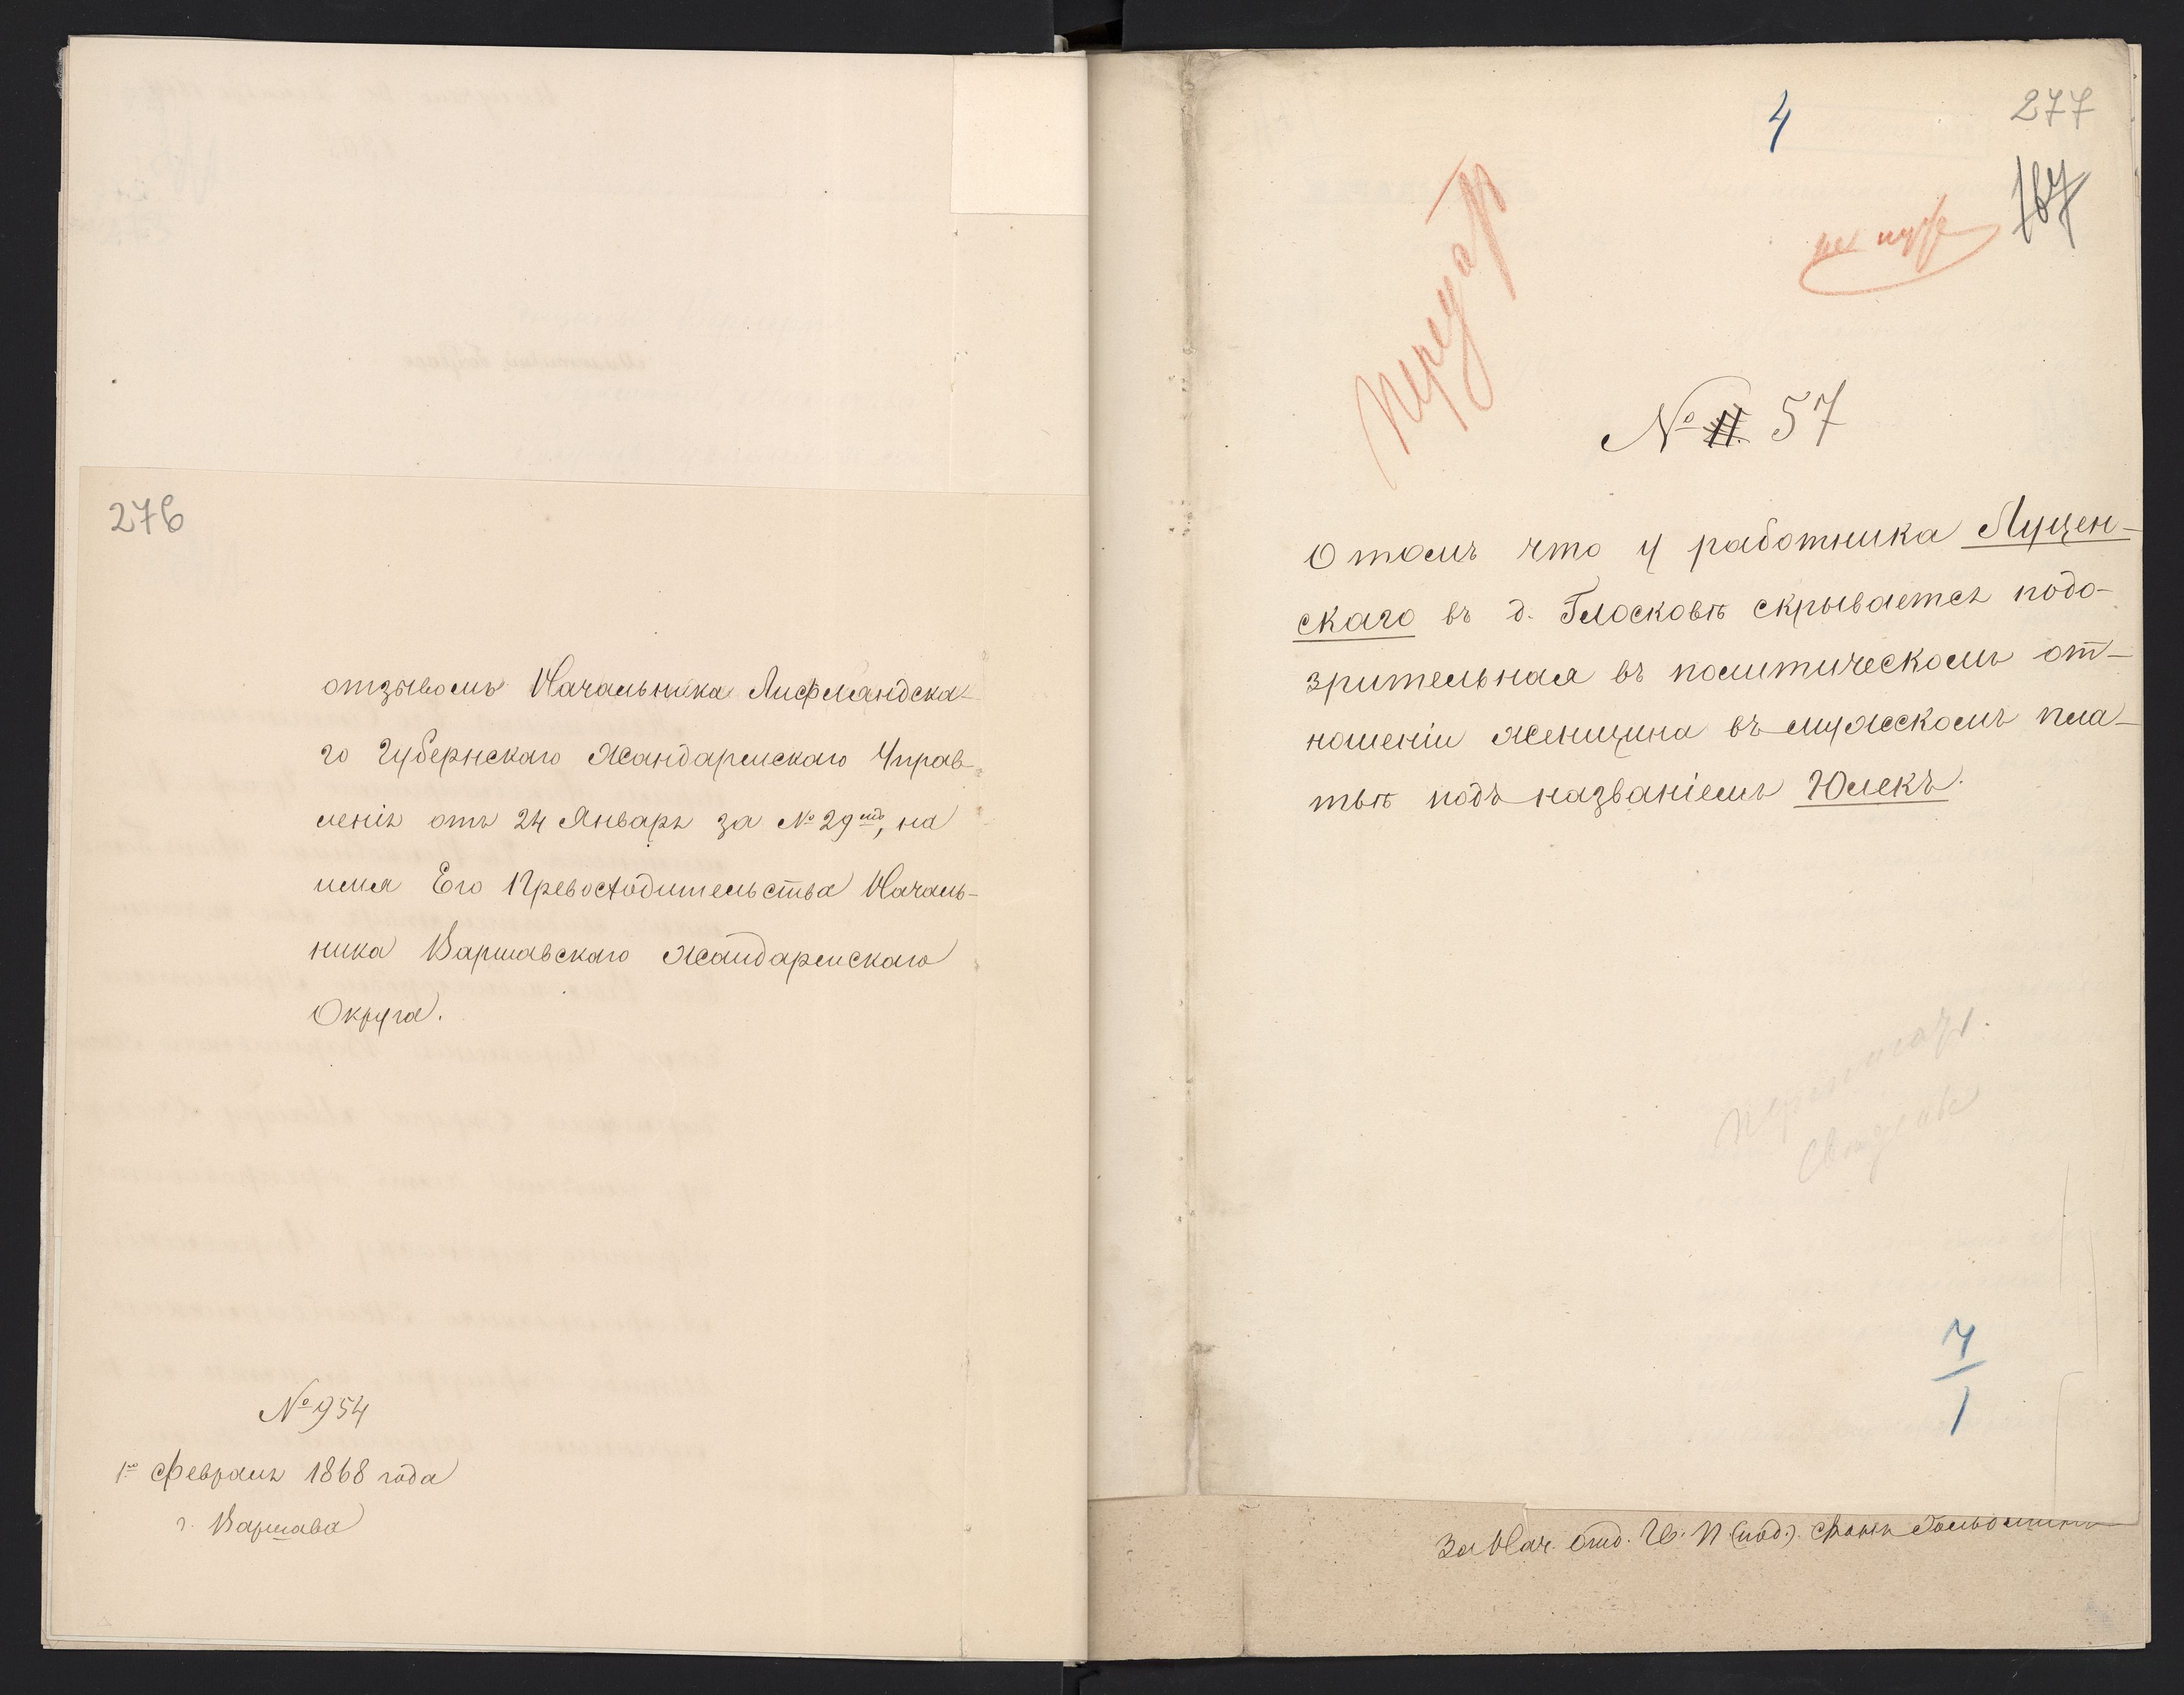 276
отзывомъ Начальника Лифляндска-
го Губернскаго Жандармскаго Управ-
ленія отъ 24 Января за № 29мъ, на
имя Его Превосходительства Началь-
ника Варшавскаго Жандармскаго
Округа.
№ 954
1го Февраля 1868 года
г. Варшава
4
277
167
№ 11. 57
О томъ что у работника Луцен-
скаго въ д. Глосковѣ скрывается подо-
зрительная въ политическомъ от-
ношеніи женщина въ мужскомъ пла-
тьѣ подъ названіемъ Юлекъ.
4
1
За Нач. Отд.